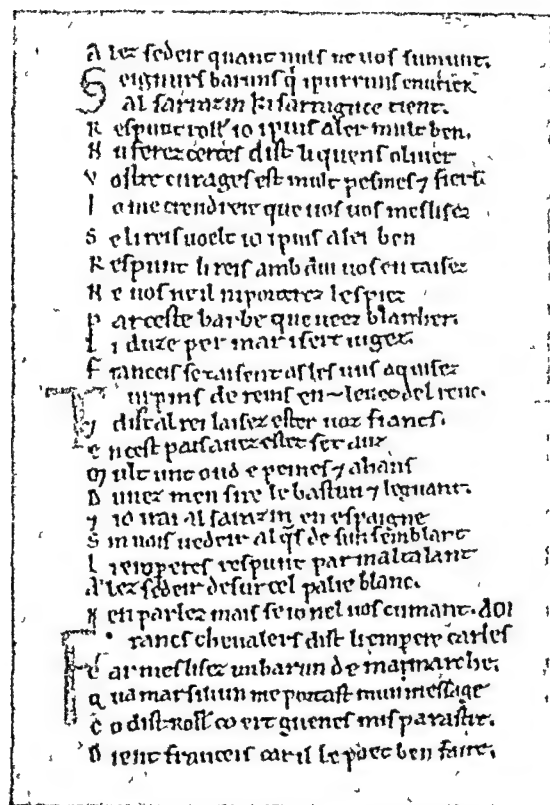 A lez sedeir quant nuls ne vos sumunt.
S eignurs baruns q̄ i purruns enveier
al sarrazin ki sarraguce tient.
R espunt roll̄ io i puis aler mult ben.
N u ferez certes dist li quens oliver
V ostre curages est mult pesmes ⁊ fiers
I o me crendreie que vos vos meslisez
S e li reis voelt io i puis aler ben
R espunt li reis ambdui vos en taisez
N e vos ne il ni porterez les piez
P ar ceste barbe que veez blancher.
L i duze per mar i sert iuget.
F ranceis se taisent as les vus aquisez
T urpins de reins en ~ levet del renc.
⁊ dist al rei laisez ester voz francs.
E n cest pais avez estet set anz
M ult unt oud e peines ⁊ ahans
D unez men sire le bastun ⁊ le guant.
⁊ io irai al sarazin en espaigne
S in vois vedeir al q̄s de sun semblant
L i emperes respunt par maltalant
A lez sedeir desur cel palie blanc.
N en parlez mais se io nel vos cumant. AOI
F rancs chevalers dist li empere carles
C ar meslisez un barun de ma marche.
Q ua marsiliun me portast mun message
C o dist roll̄ co ert guenes mis parastre.
D ient franceis car il le poet ben faire.